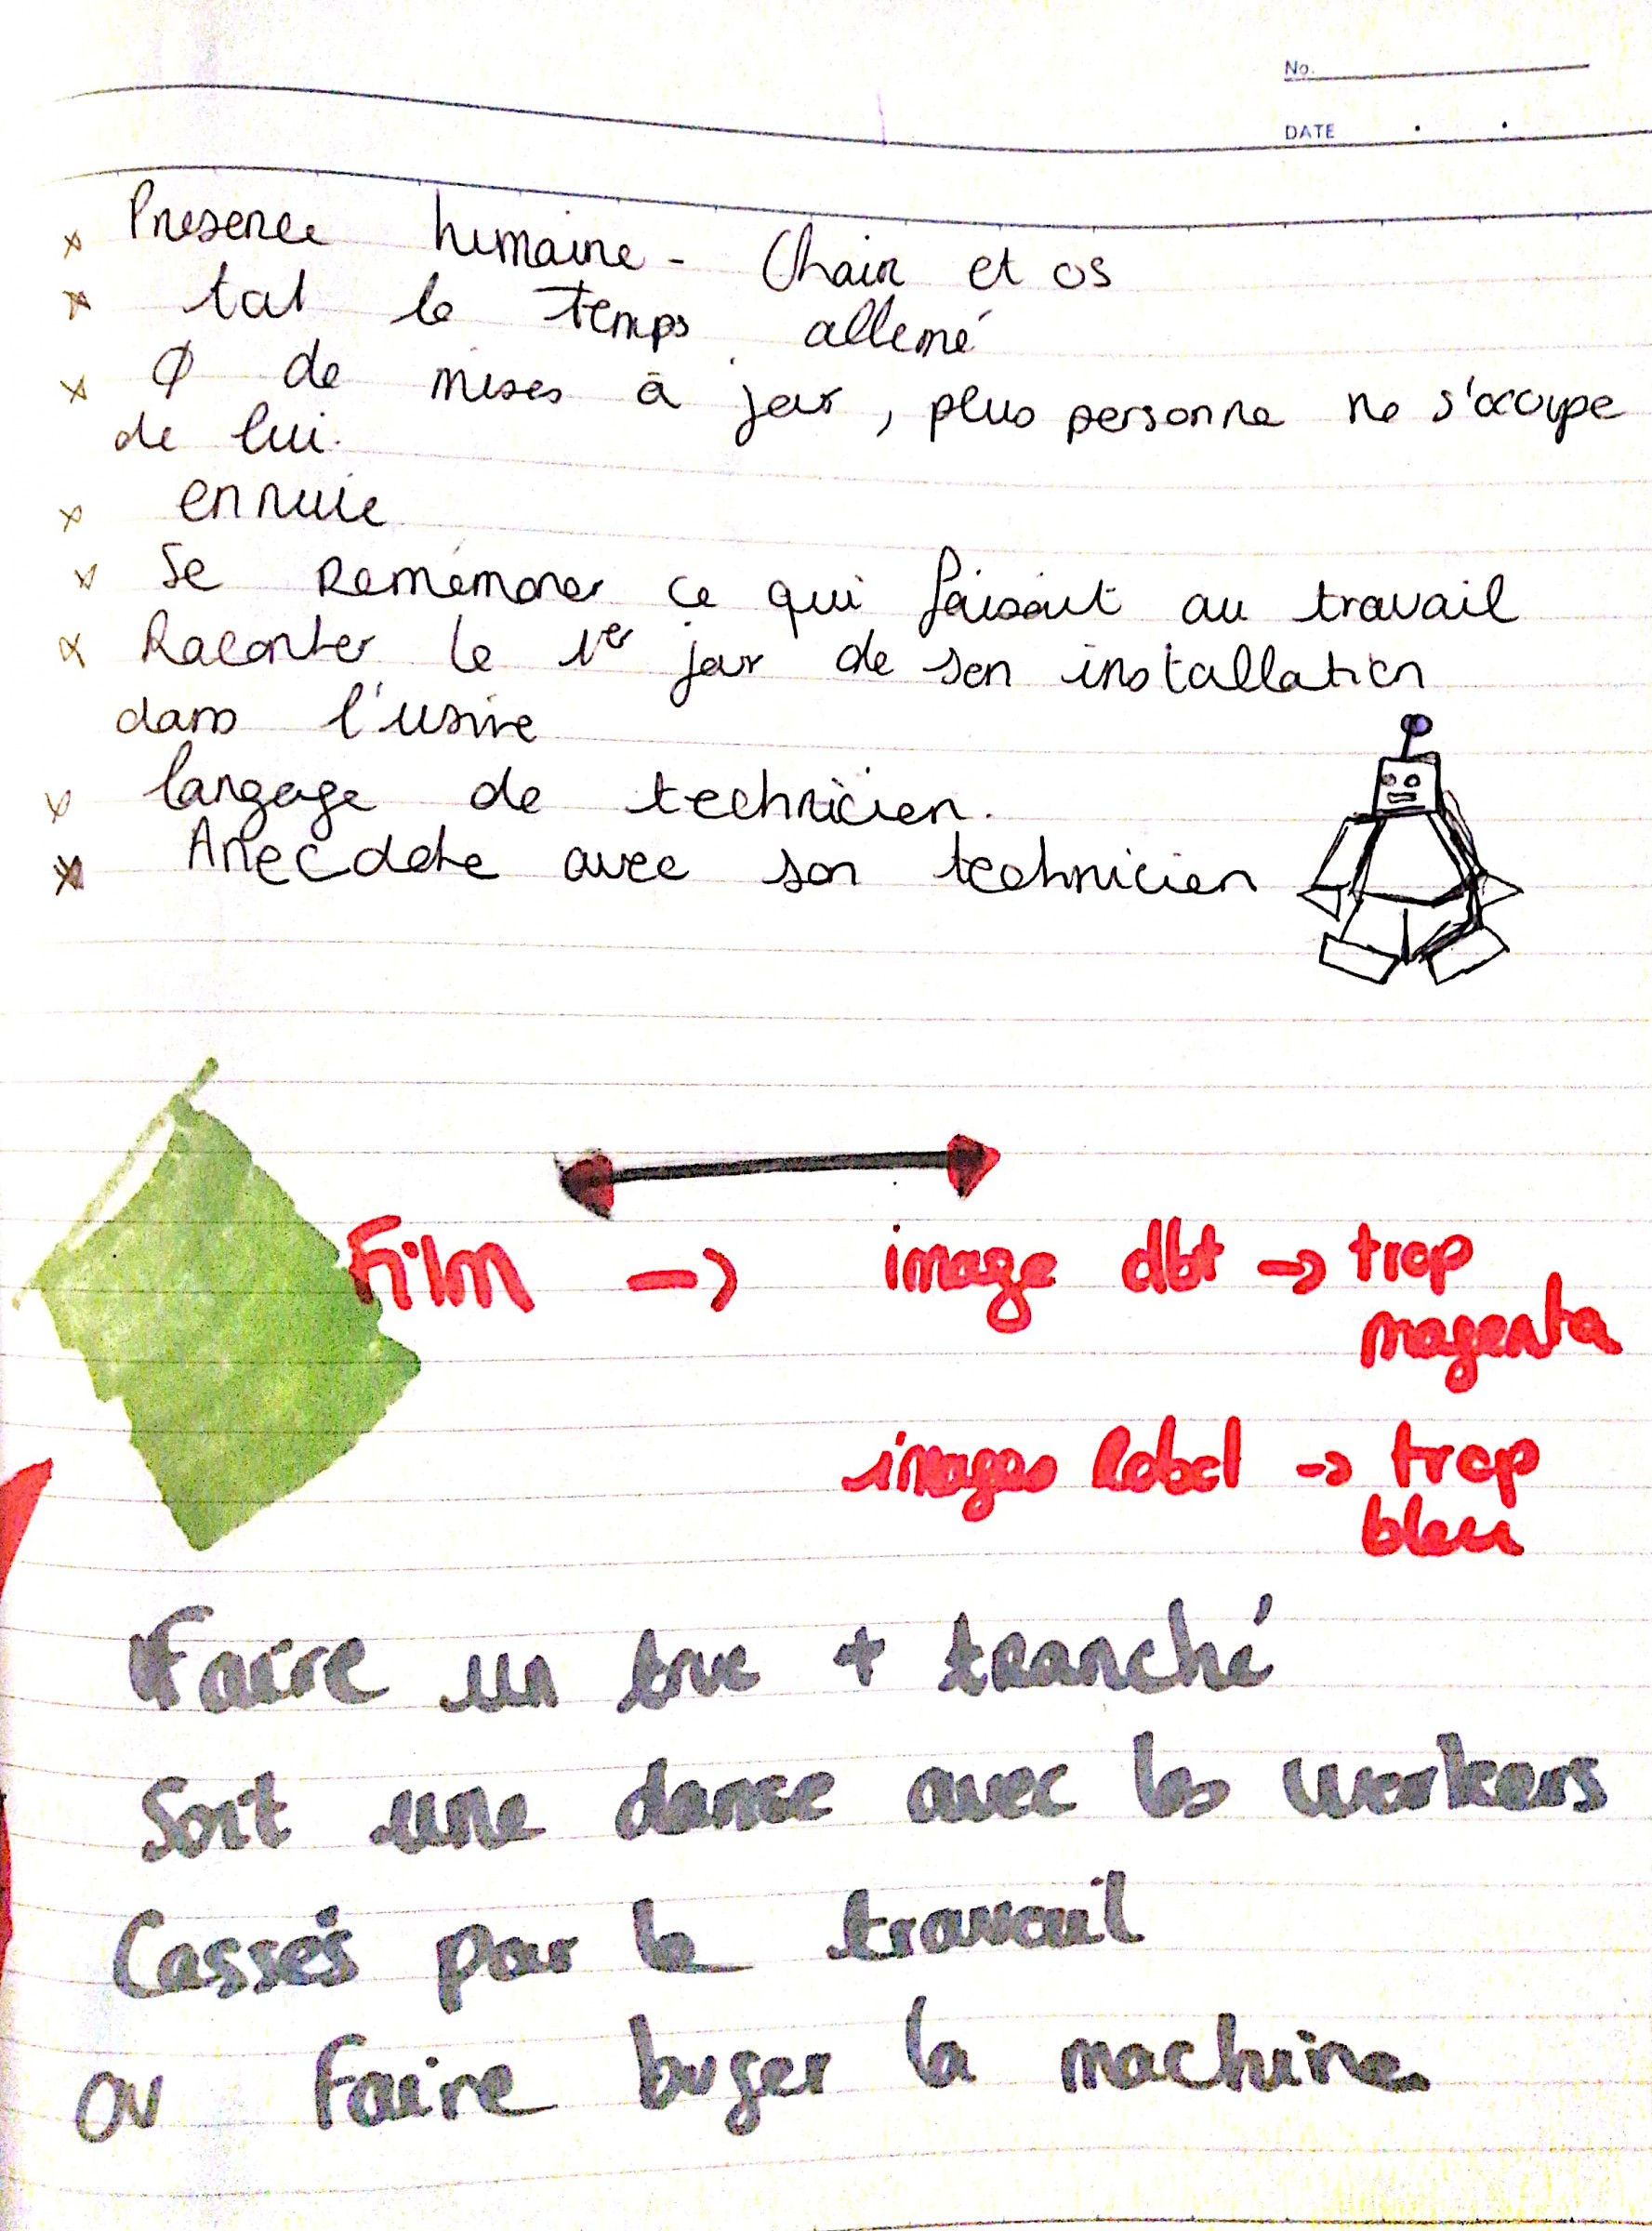 No.
DATE . .
x Presence humaine - Chair et os
x tout le temps. allumé
x Ø de mises à jour, plus personne ne s'occupe
de lui.
x ennuie
x Se Remémorer ce qui faisait au travail
x Raconter le 1er jour de son installation
dans l'usine
x langage de technicien.
x Anecdote avec son technicien
Film -> image dbt -> trop
magenta
images Robot -> trop
bleu
Faire un truc + tranché
Soit une danse avec les workers
Cassés par le travail
ou Faire buger la machine